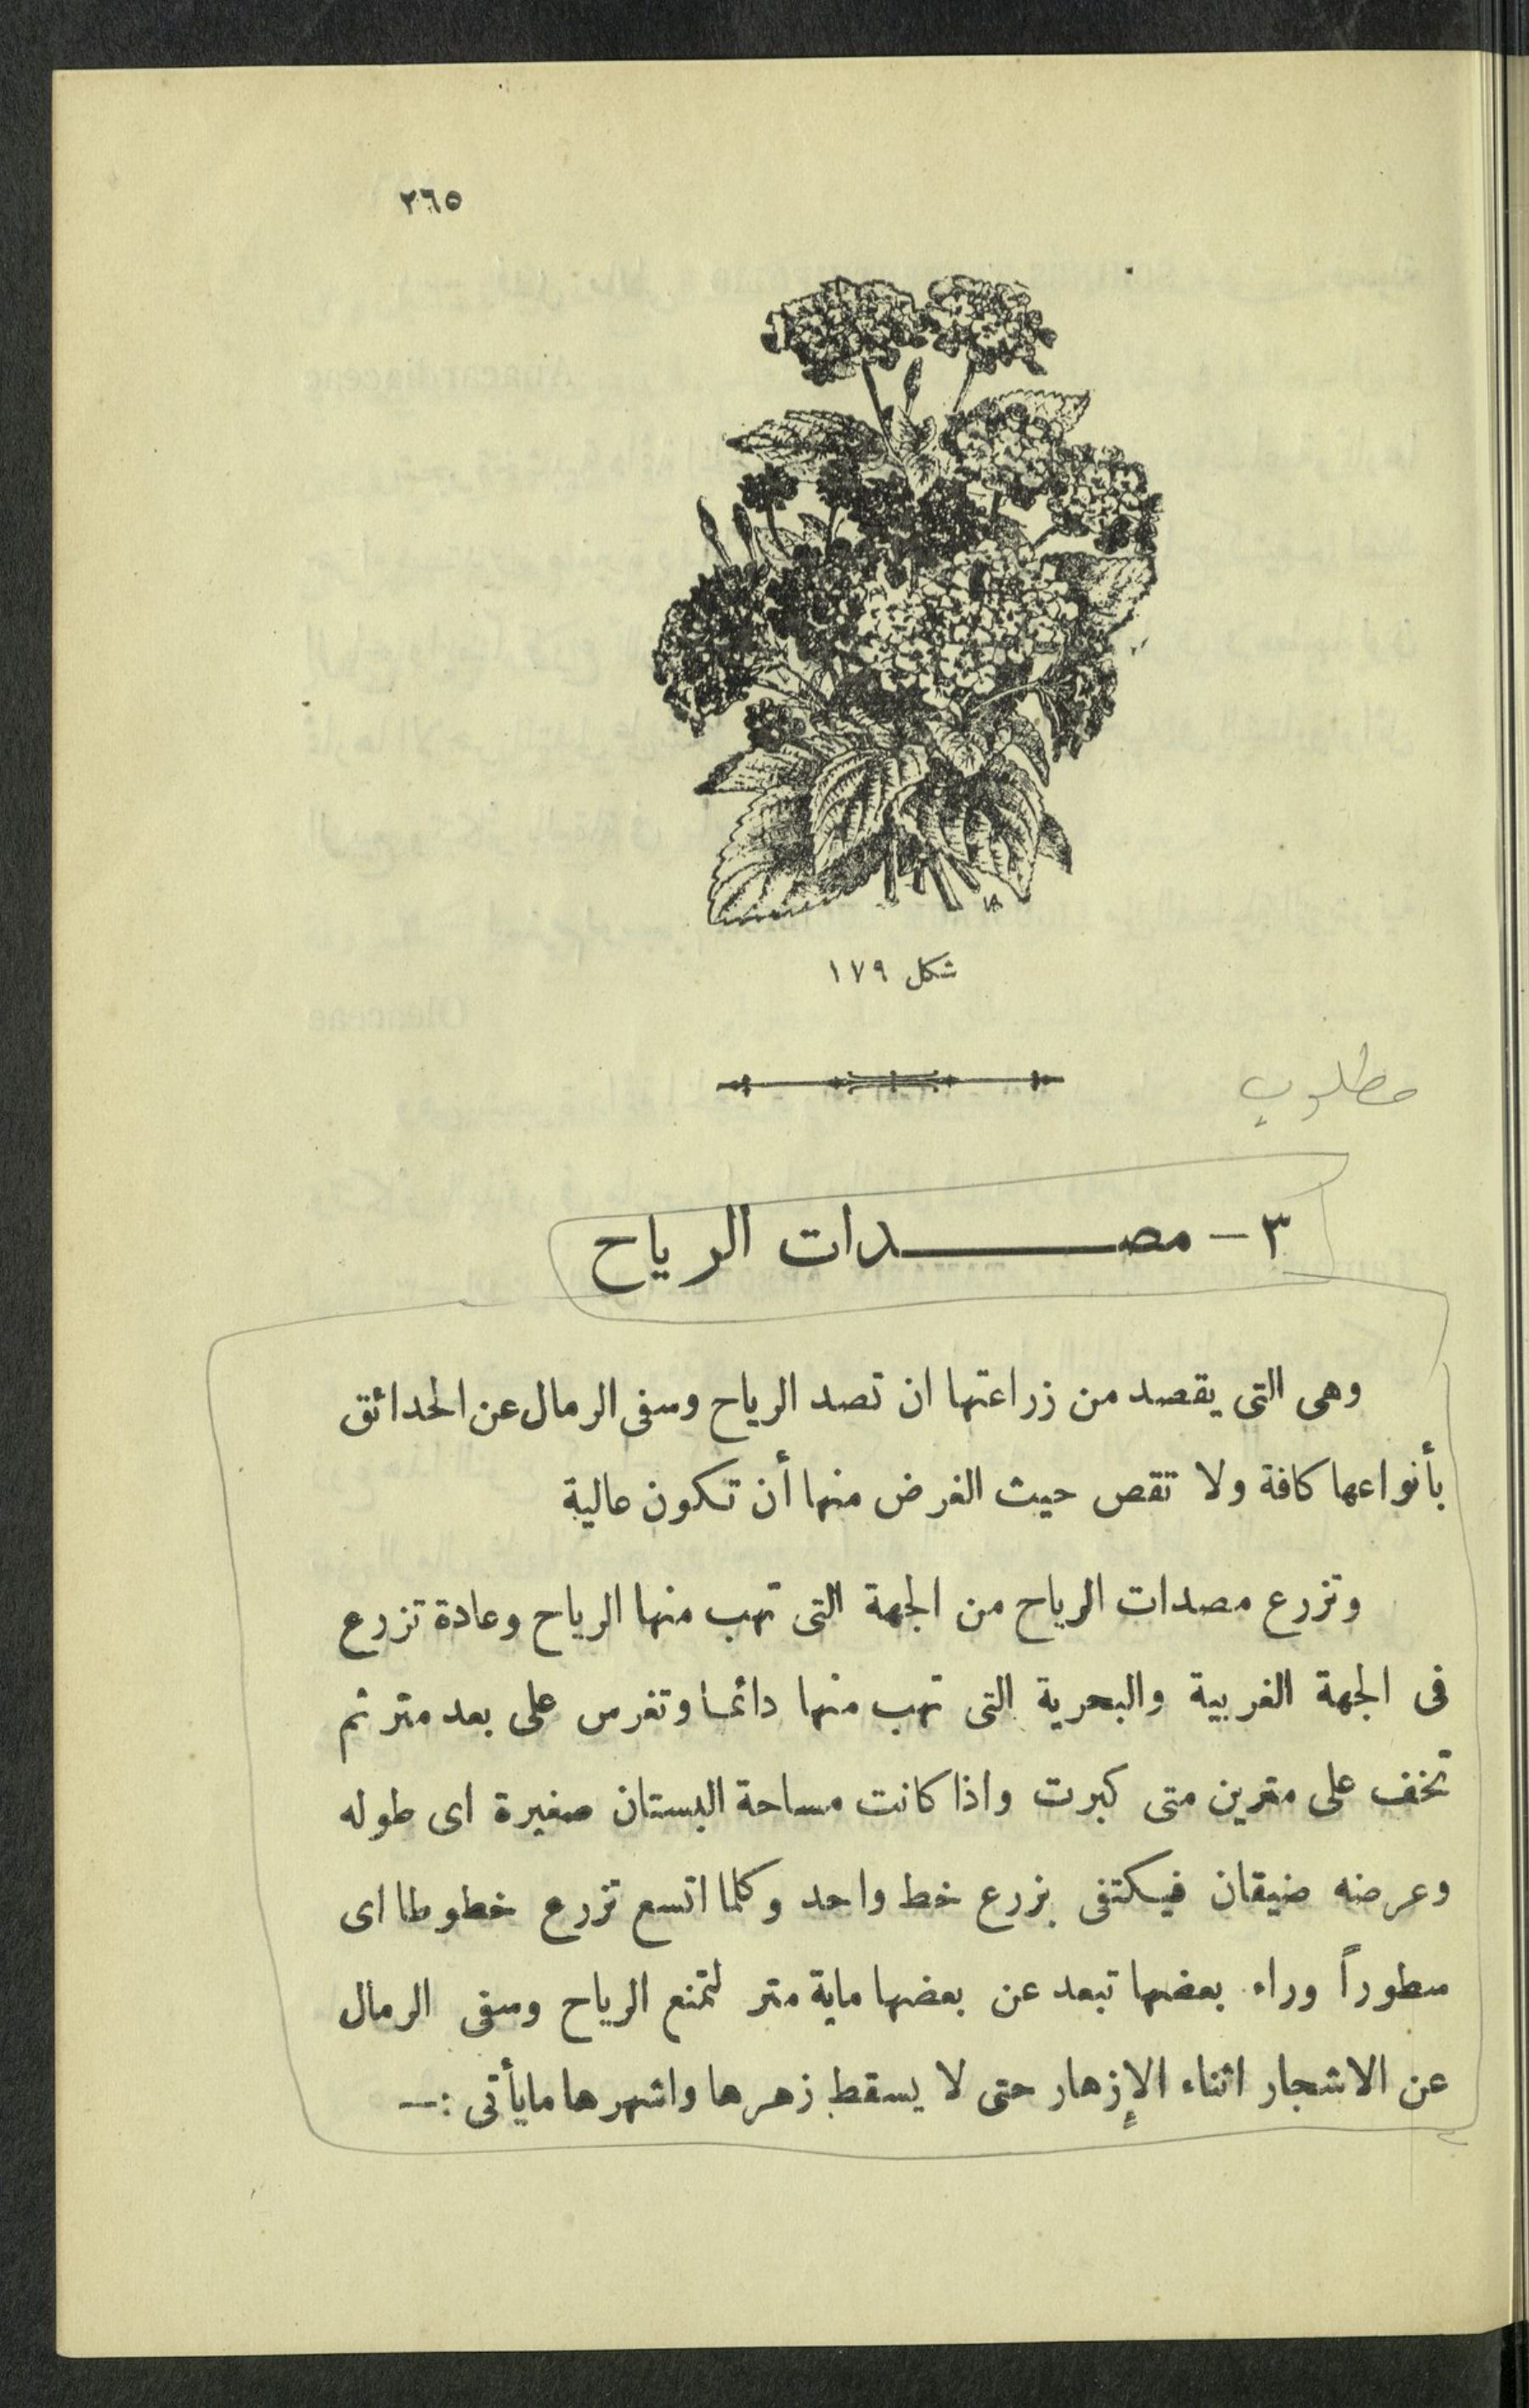 ٢٦٥
شكل ١٧٩
مطلوب
٣ – مصـــدات الرياح
وهى التى يقصد من زراعتها ان تصد الرياح وسفى الرمال عن الحدائق
بأنواعها كافة ولا تقص حيث الغرض منها أن تكون عالية
وتزرع مصدات الرياح من الجهة التى تهب منها الرياح وعادة تزرع
فى الجهة الغربية والبحرية التى تهب منها دائما وتغرس على بعد متر ثم
تخفف على مترين متى كبرت واذا كانت مساحة البستان صغيرة اى طوله
وعرضه ضيقان فيكتفى بزرع خط واحد وكلما اتسع تزرع خطوطا اى
سطوراً وراء بعضها تبعد عن بعضها ماية متر لتمنع الرياح وسفى الرمال
عن الاشجار اثناء الإزهار حتى لا يسقط زهرها واشهرها مايأتى :—